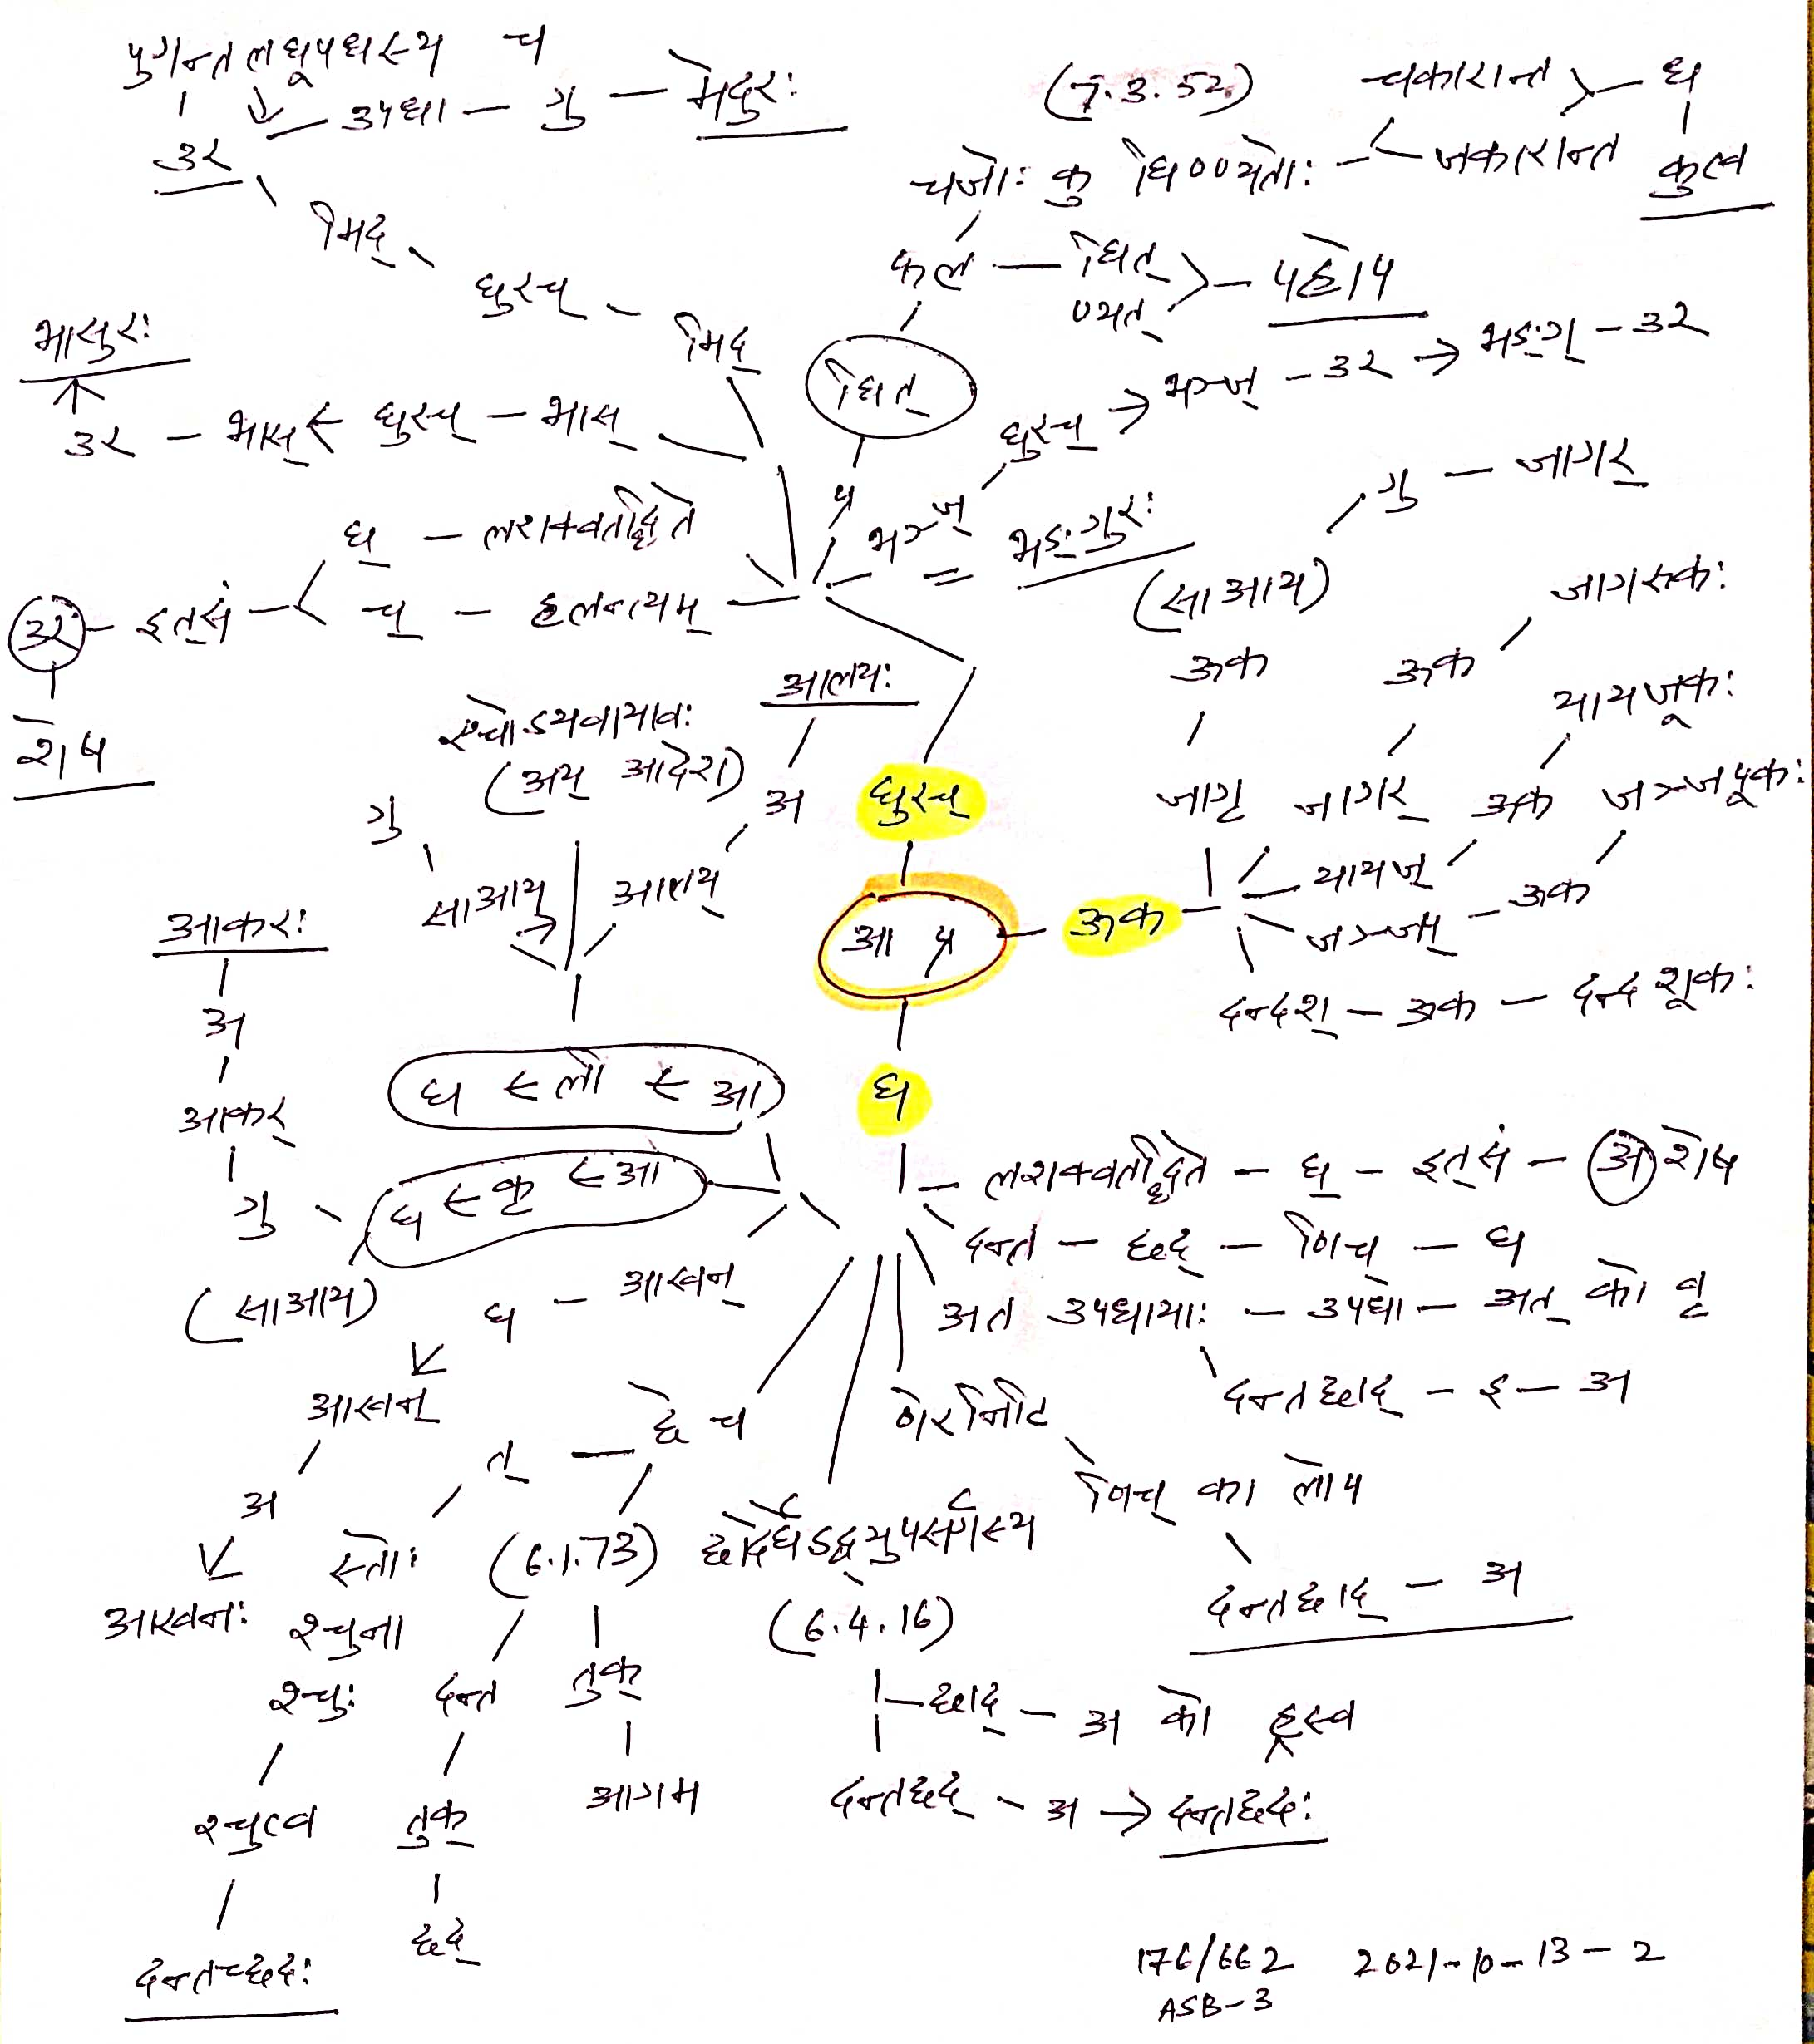 पुगन्तलघूपधस्य च
उपधा - गु - मेदुरः
उर
मिद्
घुरच्
मिद्
(7.3.52)
चकारान्त
घ
चजोः कु घिण्ण्यतोः - जकारान्त
कुत्व
फल - घित्
ण्यत्
घित्
प्र
भासुरः
उर - भास् ← घुरच् - भास्
घुरच् → भञ्ज् - उर → भङ्ग् - उर
भञ्ज् = भङ्गुरः
गु - जागर्
(साआय)
घ् - लशक्वतद्धिते
उर - इत्सं - च् - हलन्त्यम्
शेष
ऊक
ऊक
जागरूकः
यायजूकः
जागृ
जागर्
ऊक
जञ्जपूकः
एचोऽयवायावः
(अय् आदेश)
आलयः
अ
घुरच्
गु
साआय्
आलय्
आ प्र - ऊक
यायज्
ऊक
दन्दश् - ऊक - दन्दशूकः
आकरः
अ
आकर्
गु
(साआय)
घ ← ली ← आ
घ
घ ← कृ ← आ
लशक्वतद्धिते - घ् - इत्सं - अ शेष
दन्त - छद् - णिच् - घ
अत उपधायाः - उपधा - अत् को वृ
दन्तछाद् - इ - अ
घ - आखन्
आखन्
अ
आखनः
त् - छे च
णेरनिटि
णिच् का लोप
दन्तछाद् - अ
स्तोः
श्चुना
श्चुः
श्चुत्व
दन्तच्छदः
(6.1.73)
दन्त
तुक्
छद्
तुक्
आगम
छादेर्घेऽद्व्युपसर्गस्य
(6.4.16)
छाद् - अ को ह्रस्व
दन्तछद् - अ → दन्तछदः
176/662 2021-10-13-2
ASB-3